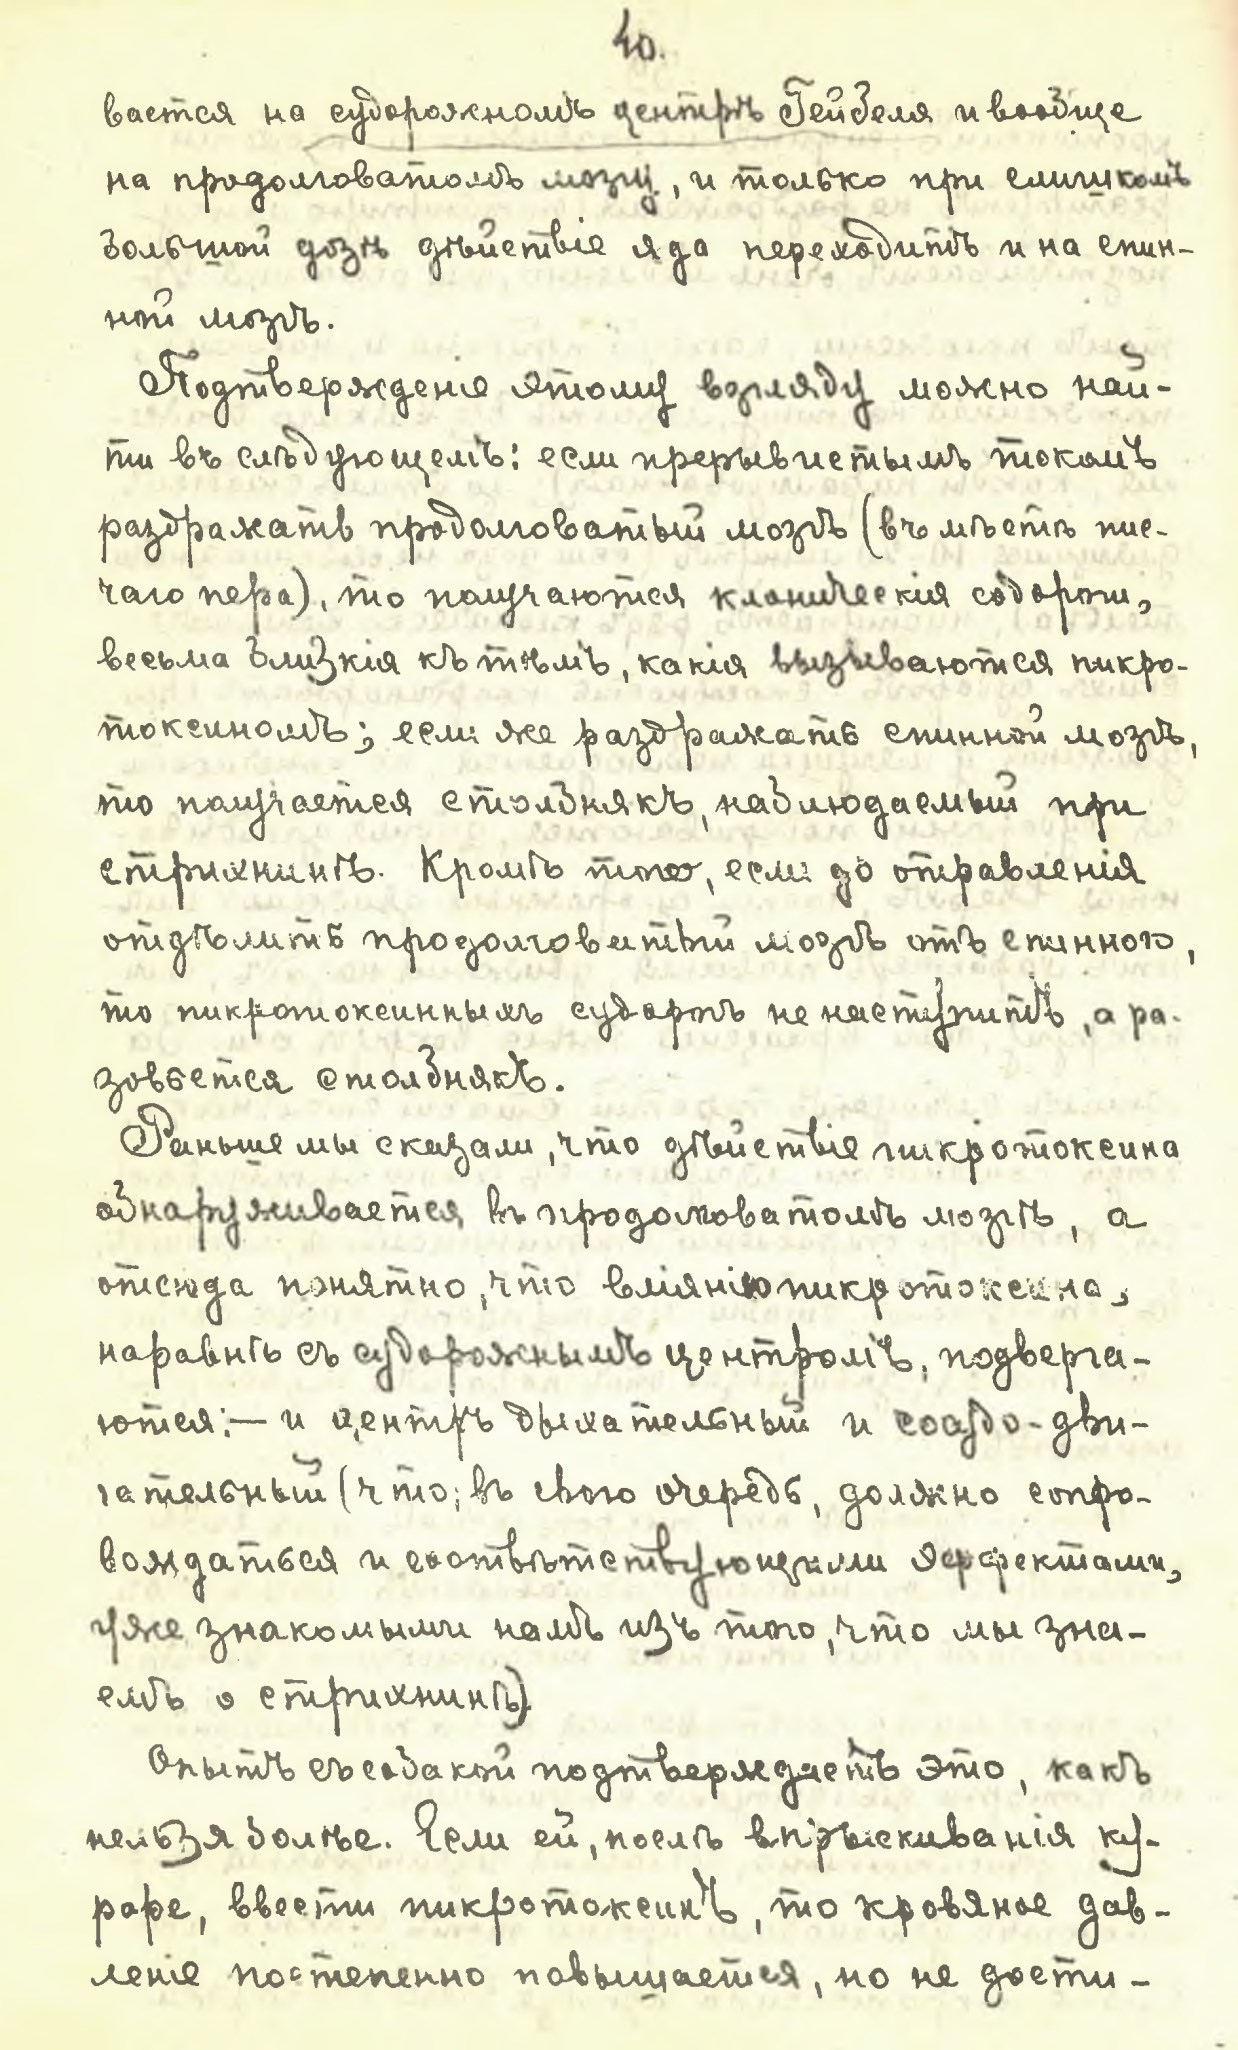 40.
вается на судорожномъ центрѣ Гейбеля и вообще
на продолговатомъ мозгу, и только при слишкомъ
большой дозѣ дѣйствіе яда переходитъ и на спин-
ной мозгъ.
Подтвержденіе этому взгляду можно най-
ти въ слѣдующемъ: если прерывистымъ токомъ
раздражать продолговатый мозгъ (въ мѣстѣ пис-
чаго пера), то получаются клоническія судороги,
весьма близкія къ тѣмъ, какія вызываются пикро-
токсиномъ; если же раздражать спинной мозгъ,
то получается столбнякъ, наблюдаемый при
стрихнинѣ. Кромѣ того, если до отравленія
отдѣлить продолговатый мозгъ отъ спинного,
то пикротоксинныхъ судорогъ не наступитъ, а ра-
зовьется столбнякъ.
Раньше мы сказали, что дѣйствіе пикротоксина
обнаруживается въ продолговатомъ мозгѣ, а
отсюда понятно, что вліянію пикротоксина,
наравнѣ съ судорожнымъ центромъ, подверга-
ются: — и центръ дыхательный и сосудо-дви-
гательный (что, въ свою очередь, должно сопро-
вождаться и соотвѣтствующими эффектами,
уже знакомыми намъ изъ того, что мы зна-
емъ о стрихнинѣ).
Опытъ съ собакой подтверждаетъ это, какъ
нельзя болѣе. Если ей, послѣ впрыскиванія ку-
раре, ввести пикротоксинъ, то кровяное дав-
леніе постепенно повышается, но не дости-